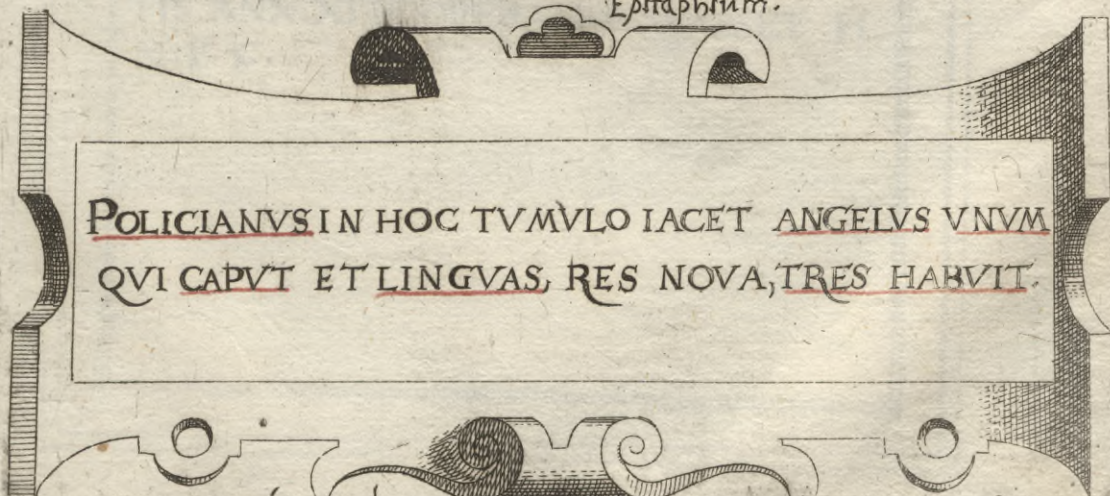 Epitaphium.
POLICIANVS IN HOC TVMVLO IACET ANGELVS VNVM
QVI CAPVT ET LINGVAS, RES NOVA, TRES HABVIT.